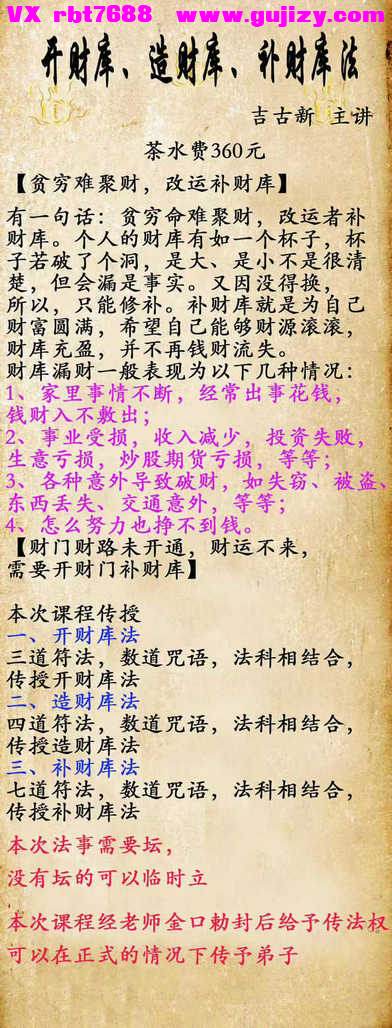 VX rbt7688  www.gujizy.com
开财库、造财库、补财库法
吉古新 主讲
茶水费360元
【贫穷难聚财，改运补财库】
有一句话：贫穷命难聚财，改运者补
财库。个人的财库有如一个杯子，杯
子若破了个洞，是大、是小不是很清
楚，但会漏是事实。又因没得换，
所以，只能修补。补财库就是为自己
财富圆满，希望自己能够财源滚滚，
财库充盈，并不再钱财流失。
财库漏财一般表现为以下几种情况：
1、家里事情不断，经常出事花钱，
钱财入不敷出；
2、事业受损，收入减少，投资失败，
生意亏损，炒股期货亏损，等等；
3、各种意外导致破财，如失窃、被盗、
东西丢失、交通意外，等等；
4、怎么努力也挣不到钱。
【财门财路未开通，财运不来，
需要开财门补财库】
本次课程传授
一、开财库法
三道符法，数道咒语，法科相结合，
传授开财库法
二、造财库法
四道符法，数道咒语，法科相结合，
传授造财库法
三、补财库法
七道符法，数道咒语，法科相结合，
传授补财库法
本次法事需要坛，
没有坛的可以临时立
本次课程经老师金口勅封后给予传法权
可以在正式的情况下传予弟子